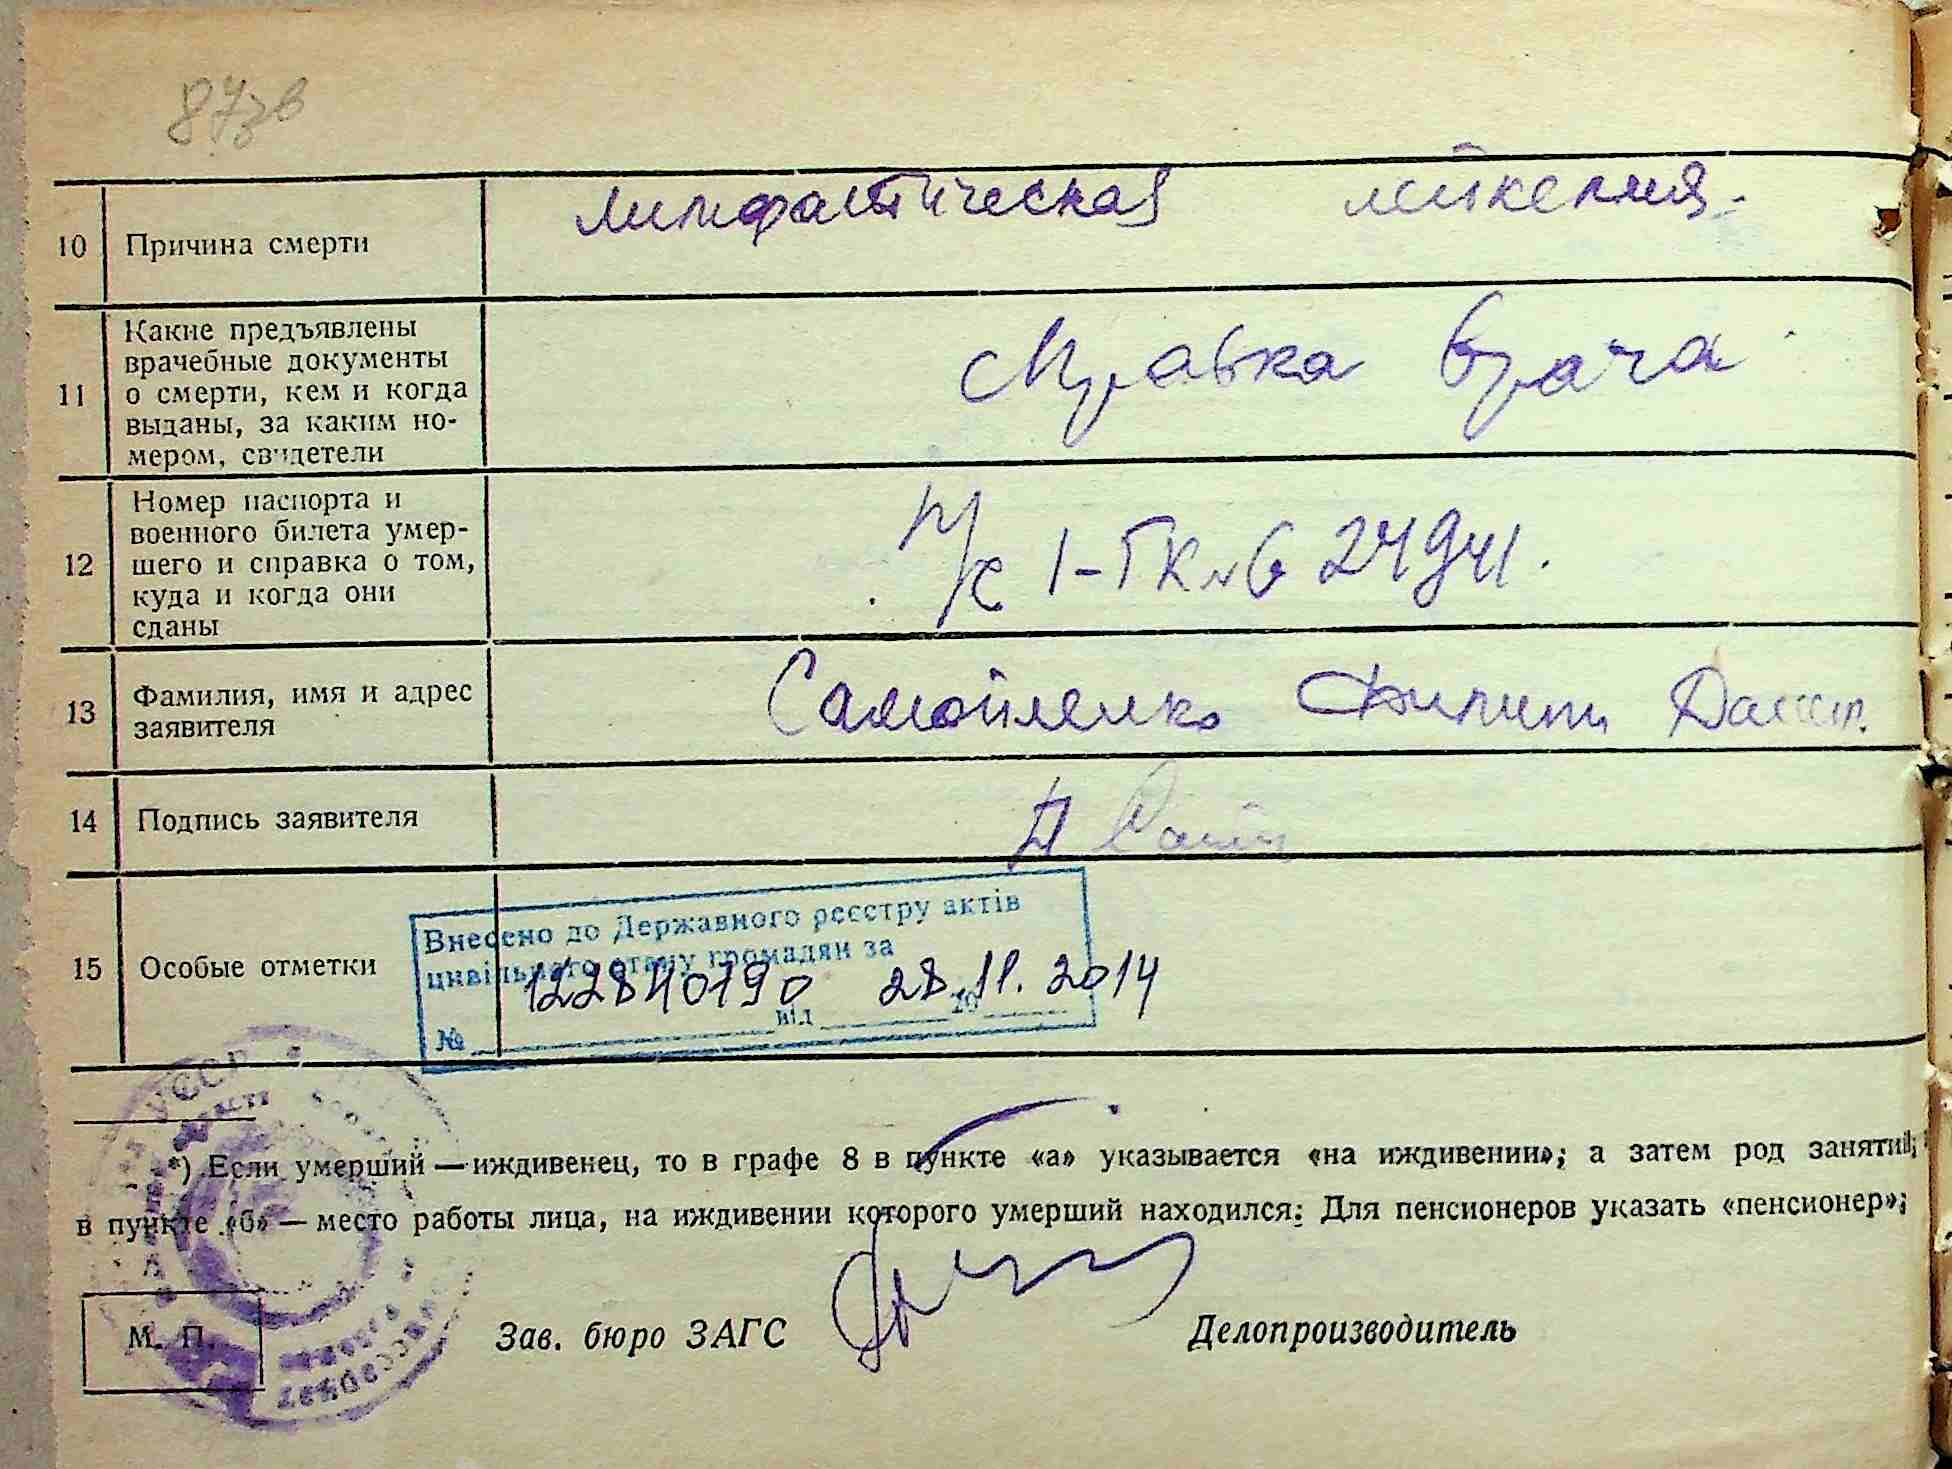 87зв
10 Причина смерти лимфатическая лейкемия.
11 Какие предъявлены
врачебные документы
о смерти, кем и когда
выданы, за каким но-
мером, свидетели
справка врача
12 Номер паспорта и
военного билета умер-
шего и справка о том,
куда и когда они
сданы
п/с I-ГК № 624941.
13 Фамилия, имя и адрес
заявителя
Самойленко Филипп
14 Подпись заявителя
15 Особые отметки
Внесено до Державного реєстру актів
цивільного стану громадян за
№ 122840190 від 28.11.2014
*) Если умерший — иждивенец, то в графе 8 в пункте «а» указывается «на иждивении»; а затем род занятий;
в пункте «б» — место работы лица, на иждивении которого умерший находился: Для пенсионеров указать «пенсионер»;
М. П. Зав. бюро ЗАГС Делопроизводитель
УССР